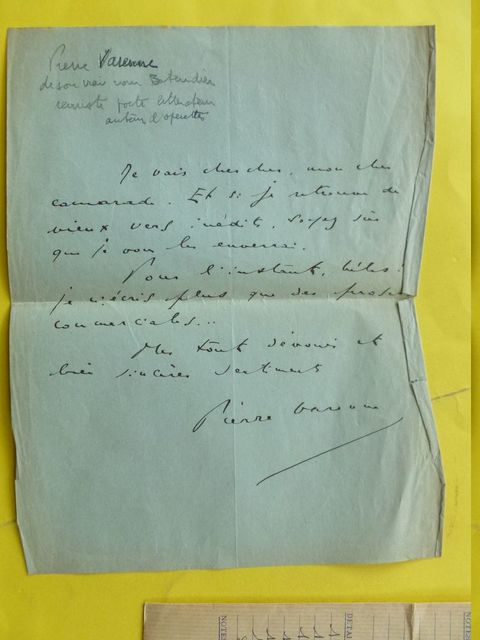 Pierre Varenne
de son vrai nom Batendier
revuiste poète littérateur
auteur d'operettes
Je vais chercher, mon cher
camarade. Et si je retrouve de
vieux vers inédits, soyez sûr
que je vous les enverrai.
Pour l'instant, hélas !
je n'écris plus que des proses
commerciales...
Mes tout dévoués et
bien sincères sentiments
Pierre Varenne
NOTES
DETAIL
NOTES